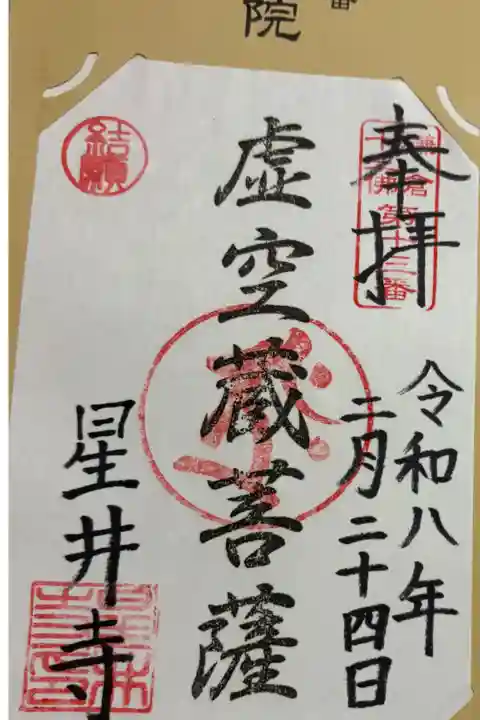 院
奉拝
鎌倉
十三佛
第十三番
令和八年
二月二十四日
虚空蔵菩薩
結願
星井寺